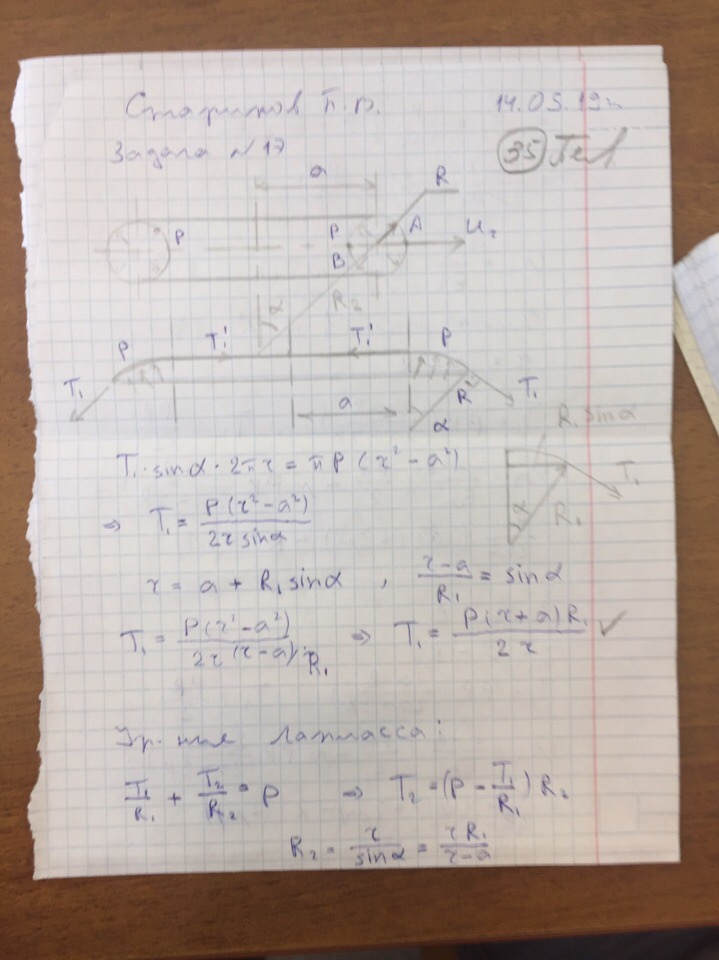 Стариков П.В. 14.05.19г
Задача №17
35
a
R
P P A
B
R₂
α
P T₁' T₁' P
T₁ a R α T₁
R₁ sinα
T₁·sinα·2πr = πP(r²-a²)
T₁
α R₁
⇒ T₁ = P(r²-a²) / 2r sinα
r = a + R₁ sinα , (r-a)/R₁ = sinα
T₁ = P(r²-a²) / 2r(r-a) · R₁ ⇒ T₁ = P(r+a)R₁ / 2r ✓
Ур-ние Лапласса:
T₁/R₁ + T₂/R₂ = P ⇒ T₂ = (P - T₁/R₁) R₂
R₂ = r/sinα = rR₁/(r-a)